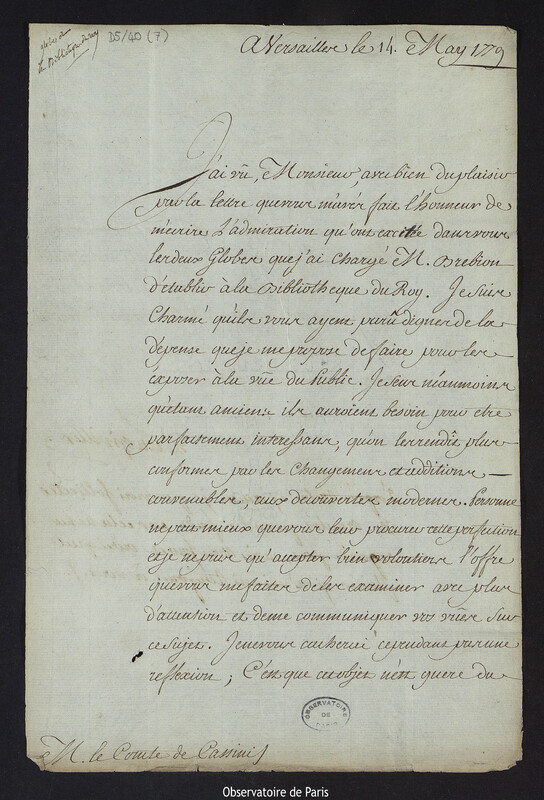 globes de
la Bibliotheque du roy
D5/40 (7)
A Versailles le 14. May 179
J'ai vû, Monsieur, avec bien du plaisir
par la lettre que vous m'avés fait l'honneur de
m'ecrire l'admiration qu'ont excitée dans vous
les deux Globes que j'ai chargé M. Brebion
d'établir à la Bibliotheque du Roy. Je suis
Charmé qu'ils vous ayent parû dignes de la
dépense que je me propose de faire pour les
exposer à la vüe du Public. Je sens néanmoins
qu'etant anciens ils auroient besoin pour etre
parfaitement interessans, qu'on les rendit plus
conformes par les Changemens et additions
convenables, aux decouvertes modernes. Personne
ne peut mieux que vous leur procurer cette perfection
et je ne puis qu'accepter bien volontiers l'offre
que vous me faites de les examiner avec plus
d'attention et de me communiquer vos vües sur
ce sujet. Je ne vous cacherai cependant pas une
reflexion ; C'est que cet objet n'est guere du
OBSERVATOIRE
DE
M. le Comte de Cassini
Observatoire de Paris